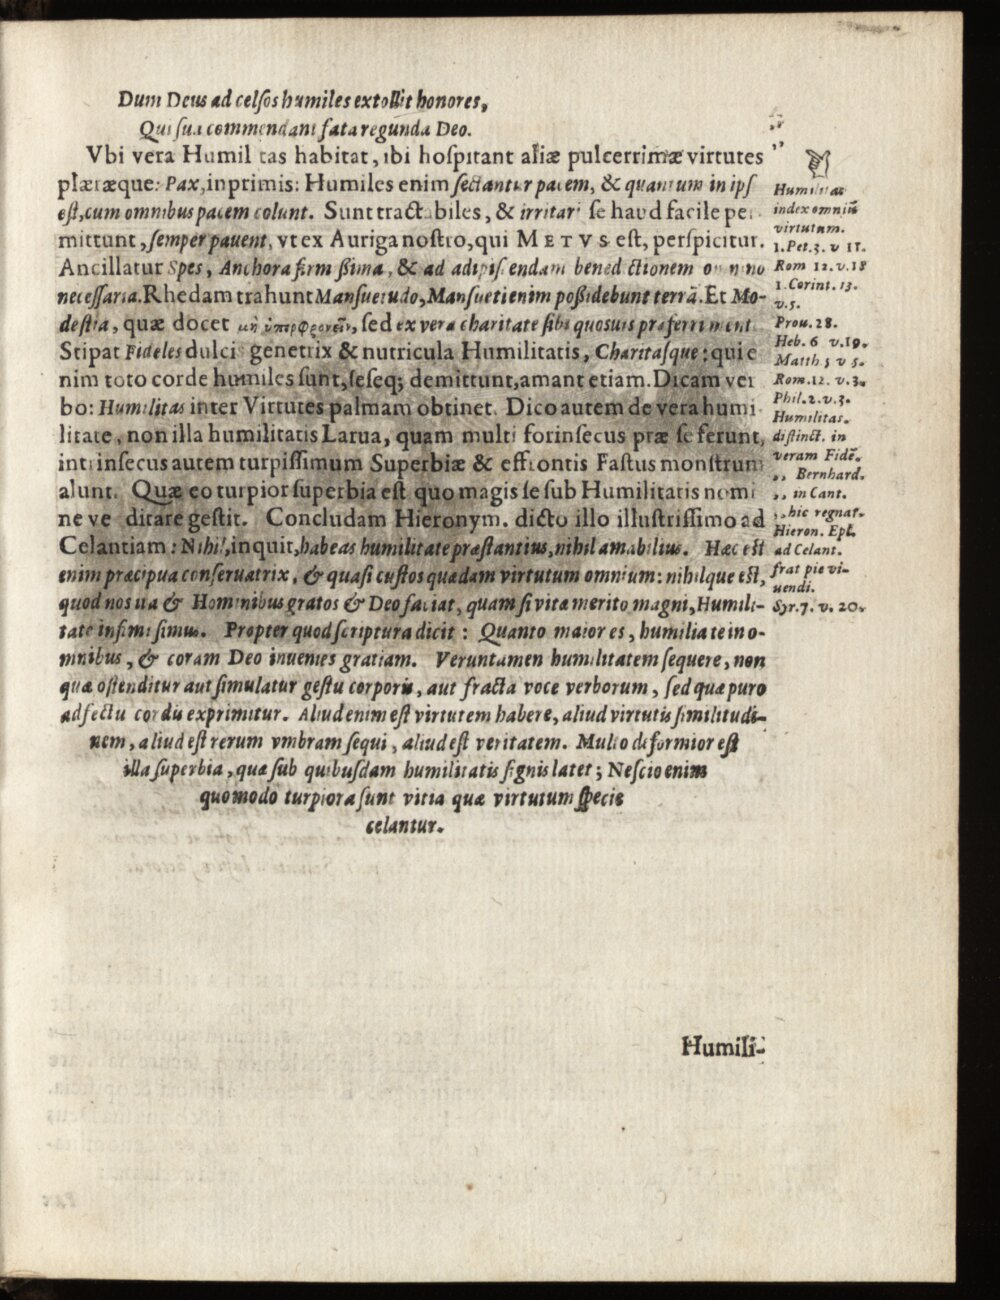 Dum Deus ad celſos humiles extollit honores,
Qui ſua commendant fata regunda Deo.
Vbi vera Humilitas habitat, ibi hoſpitant aliæ pulcerrimæ virtutes
plæræque: Pax, inprimis: Humiles enim ſectantur pacem, & quantum in ipſ
eſt, cum omnibus pacem colunt. Sunt tractabiles, & irritari ſe haud facile per
mittunt, ſemper pauent, vt ex Auriga noſtro, qui METVS eſt, perſpicitur.
Ancillatur Spes, Anchora firmißima, & ad adipiſcendam benedictionem omnino
neceſſaria. Rhedam trahunt Manſuetudo, Manſueti enim poßidebunt terrā. Et Mo-
deſtia, quæ docet μὴ ὑπερφρονεῖν, ſed ex vera charitate ſibi quoſuis præferri ment
Stipat Fideles dulcis genetrix & nutricula Humilitatis, Charitaſque: qui e
nim toto corde humiles ſunt, ſeſeq; demittunt, amant etiam. Dicam ver
bo: Humilitas inter Virtutes palmam obtinet. Dico autem de vera humi
litate, non illa humilitatis Larua, quam multi forinſecus præ ſe ferunt,
intrinſecus autem turpiſſimum Superbiæ & effrontis Faſtus monſtrum
alunt. Quæ eo turpior ſuperbia eſt quo magis ſe ſub Humilitatis nomi
ne ve ditare geſtit. Concludam Hieronym. dicto illo illuſtriſſimo ad
Celantiam: Nihil, inquit, habeas humilitate præſtantius, nihil amabilius. Hæc eſt
enim præcipua conſeruatrix, & quaſi cuſtos quædam virtutum omnium: nihilque eſt,
quod nos ita & Hominibus gratos & Deo faciat, quam ſi vitæ merito magni, Humili-
tate infimi ſimus. Propter quod ſcriptura dicit: Quanto maior es, humilia te in o-
mnibus, & coram Deo inuenies gratiam. Veruntamen humilitatem ſequere, non
quæ oſtenditur aut ſimulatur geſtu corporis, aut fracta voce verborum, ſed quæ puro
adfectu cordis exprimitur. Aliud enim eſt virtutem habere, aliud virtutis ſimilitudi-
nem, aliud eſt rerum vmbram ſequi, aliud eſt veritatem. Multo deformior eſt
illa ſuperbia, quæ ſub quibuſdam humilitatis ſignis latet; Neſcio enim
quomodo turpiora ſunt vitia quæ virtutum ſpecie
celantur.
Humilitas
index omniū
virtutum.
1. Pet. 3. v 11.
Rom 12. v. 18
1 Corint. 13.
v. 5.
Prou. 28.
Heb. 6 v. 19.
Matth. 5 v 5.
Rom. 12. v. 3.
Phil. 2. v. 3.
Humilitas.
diſtinct. in
veram Fidē.
,, Bernhard.
,, in Cant.
,, hic regnat.
Hieron. Epſ.
ad Celant.
frat pie vi-
uendi.
Syr. 7. v. 20.
Humili-